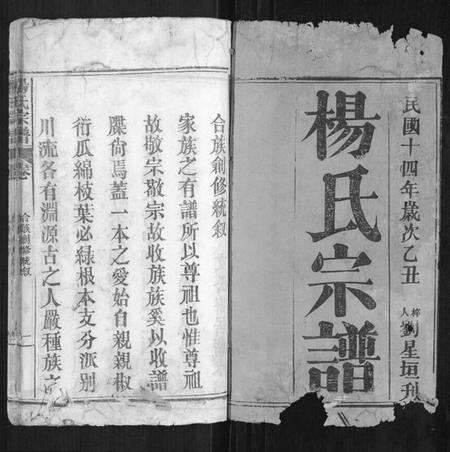 民國十四年歲次乙丑
梓人劉星垣刊
楊氏宗譜
合族創修統叙
家族之有譜所以尊祖也惟尊祖
故敬宗敬宗故收族族奚以收譜
牒尙焉蓋一本之愛始自親親椒
衍瓜綿枝葉必綠根本支分派別
川流各有淵源古之人嚴種族之
楊氏宗譜
卷
合族創修統叙
一